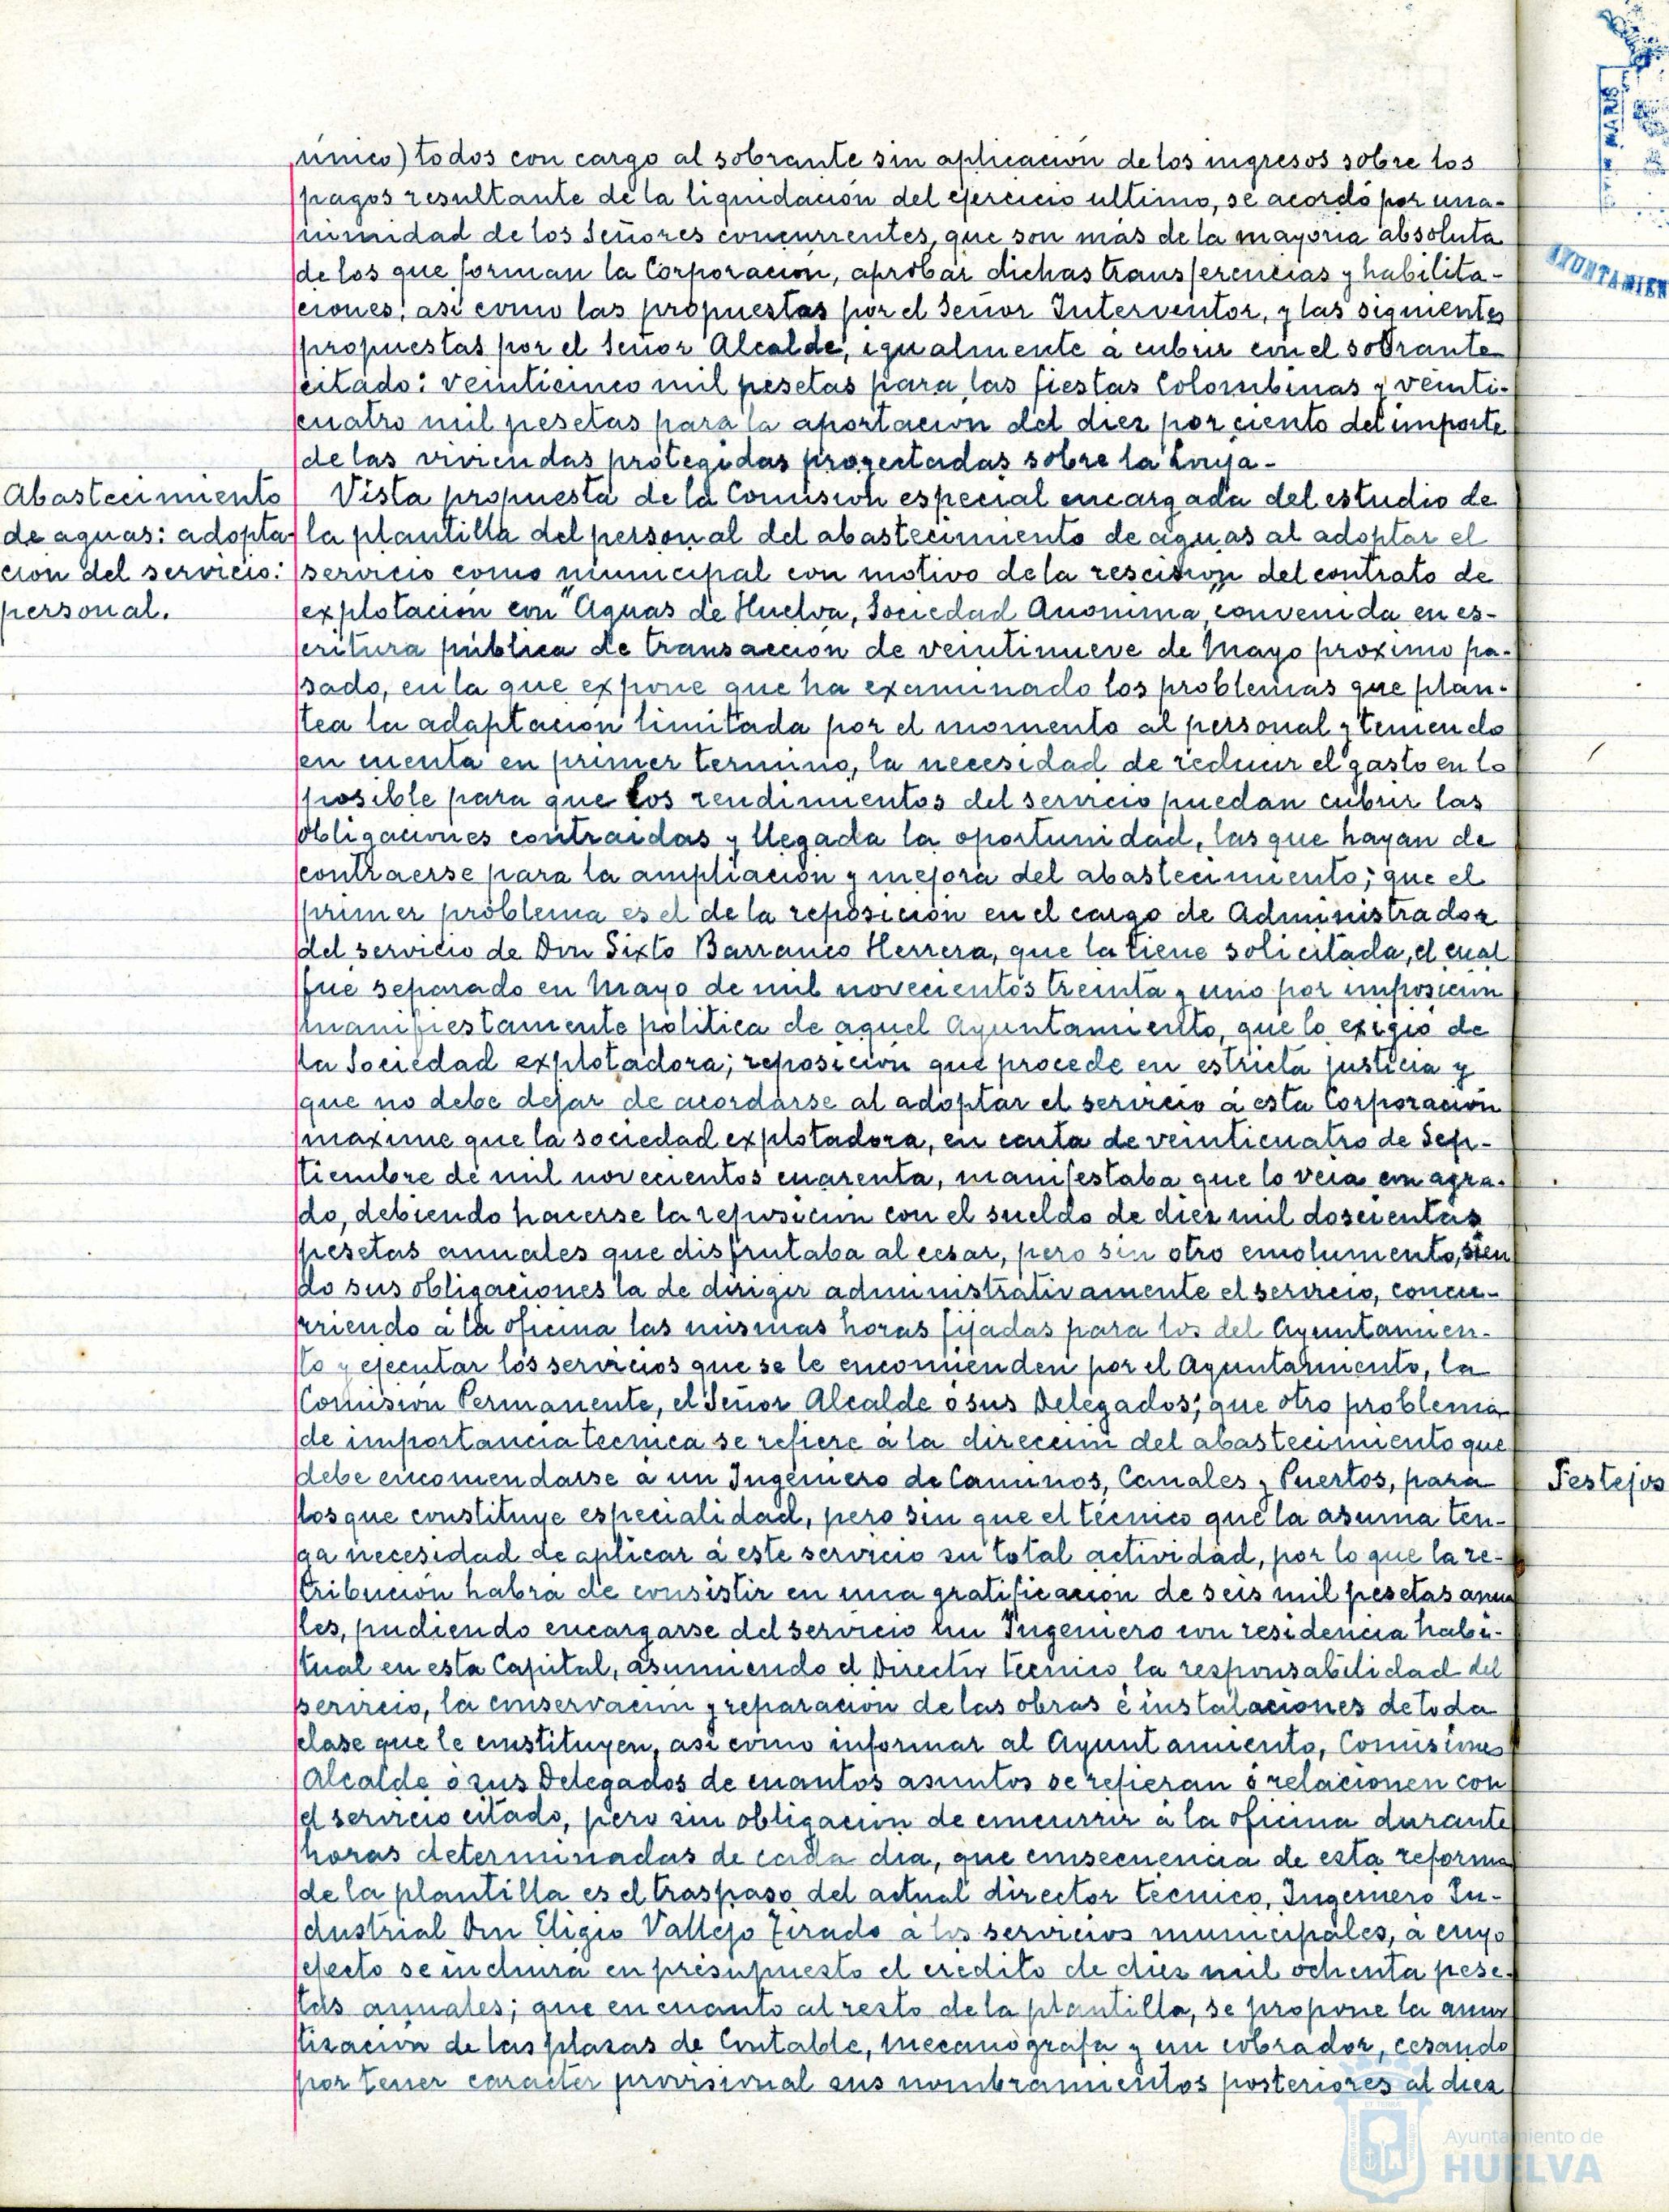 único) todos con cargo al sobrante sin aplicación de los ingresos sobre los
pagos resultante de la liquidación del ejercicio ultimo, se acordó por una-
nimidad de los Señores concurrentes, que son más de la mayoria absoluta
de los que forman la Corporación, aprobar dichas transferencias y habilita-
ciones, asi como las propuestas por el Señor Interventor, y las siguientes
propuestas por el Señor Alcalde, igualmente á cubrir con el sobrante
citado: veinticinco mil pesetas para las fiestas Colombinas y veinti-
cuatro mil pesetas para la aportación del diez por ciento del importe
de las viviendas protegidas proyectadas sobre la
Abastecimiento
de aguas: adopta-
cion del servicio:
personal.
Vista propuesta de la Comision especial encargada del estudio de
la plantilla del personal del abastecimiento de aguas al adoptar el
servicio como municipal con motivo de la rescision del contrato de
explotación con "Aguas de Huelva, Sociedad Anonima", convenida en es-
critura pública de transacción de veintinueve de Mayo proximo pa-
sado, en la que expone que ha examinado los problemas que plan-
tea la adaptación limitada por el momento al personal y teniendo
en cuenta en primer termino, la necesidad de reducir el gasto en lo
posible para que los rendimientos del servicio puedan cubrir las
obligaciones contraidas y llegada la oportunidad, las que hayan de
contraerse para la ampliación y mejora del abastecimiento; que el
primer problema es el de la reposición en el cargo de Administrador
del servicio de Don Sixto Barranco Herrera, que la tiene solicitada, el cual
fue separado en Mayo de mil novecientos treinta y uno por imposición
manifiestamente politica de aquel Ayuntamiento, que lo exigió de
la Sociedad explotadora; reposición que procede en estricta justicia y
que no debe dejar de acordarse al adoptar el servicio á esta Corporación
maxime que la sociedad explotadora, en carta de veinticuatro de Sep-
tiembre de mil novecientos cuarenta, manifestaba que lo veia con agra-
do, debiendo hacerse la reposición con el sueldo de diez mil doscientas
pesetas anuales que disfrutaba al cesar, pero sin otro emolumento, sien
do sus obligaciones la de dirigir administrativamente el servicio, concu-
rriendo á la oficina las mismas horas fijadas para los del Ayuntamien-
to y ejecutar los servicios que se le encomienden por el Ayuntamiento, la
Comisión Permanente, el Señor Alcalde ó sus Delegados; que otro problema
de importancia tecnica se refiere á la dirección del abastecimiento que
debe encomendarse á un Ingeniero de Caminos, Canales y Puertos, para
los que constituye especialidad, pero sin que el técnico que la asuma ten-
ga necesidad de aplicar á este servicio su total actividad, por lo que la re-
tribución habrá de consistir en una gratificación de seis mil pesetas anua
les, pudiendo encargarse del servicio un Ingeniero con residencia habi-
tual en esta Capital, asumiendo el Director tecnico la responsabilidad del
servicio, la conservación y reparación de las obras é instalaciones de toda
clase que le constituyen, asi como informar al Ayuntamiento, Comisiones
Alcalde ó sus Delegados de cuantos asuntos se refieran ó relacionen con
el servicio citado, pero sin obligación de concurrir á la oficina durante
horas determinadas de cada dia, que consecuencia de esta reforma
de la plantilla es el traspaso del actual director tecnico, Ingeniero In-
dustrial Don Eligio Vallejo Tirado á los servicios municipales, á cuyo
efecto se incluirá en presupuesto el credito de diez mil ochenta pese-
tas anuales; que en cuanto al resto de la plantilla, se propone la amor
tización de las plazas de Contable, mecanógrafa y un cobrador, cesando
por tener caracter provisional sus nombramientos posteriores al diez
Festejos
AYUNTAMIEN
MARIS
Ayuntamiento de
HUELVA